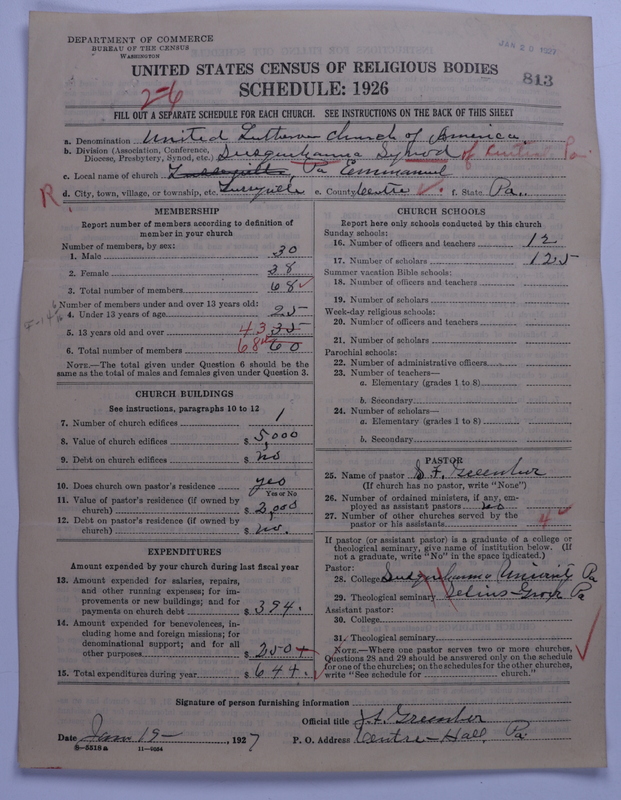 DEPARTMENT OF COMMERCE
BUREAU OF THE CENSUS
WASHINGTON
JAN 20 1927
UNITED STATES CENSUS OF RELIGIOUS BODIES
SCHEDULE: 1926
813
2-6
FILL OUT A SEPARATE SCHEDULE FOR EACH CHURCH. SEE INSTRUCTIONS ON THE BACK OF THIS SHEET
a. Denomination United Lutheran Church of America
b. Division (Association, Conference, Diocese, Presbytery, Synod, etc.) Susquehanna Synod of Central Pa.
c. Local name of church Pa Emmanuel
R
d. City, town, village, or township, etc. Tusseyville e. County Centre f. State Pa.
MEMBERSHIP
Report number of members according to definition of member in your church
Number of members, by sex:
1. Male 30
2. Female 38
3. Total number of members 68
Number of members under and over 13 years old:
4. Under 13 years of age 25
5. 13 years old and over 43 35
6. Total number of members 68 60
NOTE.—The total given under Question 6 should be the same as the total of males and females given under Question 3.
CHURCH BUILDINGS
See instructions, paragraphs 10 to 12
7. Number of church edifices 1
8. Value of church edifices $ 5,000
9. Debt on church edifices $ no
10. Does church own pastor's residence yes
Yes or No
11. Value of pastor's residence (if owned by church) $ 2,000
12. Debt on pastor's residence (if owned by church) $ no.
EXPENDITURES
Amount expended by your church during last fiscal year
13. Amount expended for salaries, repairs, and other running expenses; for improvements or new buildings; and for payments on church debt $ 394.
14. Amount expended for benevolences, including home and foreign missions; for denominational support; and for all other purposes $ 250
15. Total expenditures during year $ 644.
CHURCH SCHOOLS
Report here only schools conducted by this church
Sunday schools:
16. Number of officers and teachers 12
17. Number of scholars 125
Summer vacation Bible schools:
18. Number of officers and teachers
19. Number of scholars
Week-day religious schools:
20. Number of officers and teachers
21. Number of scholars
Parochial schools:
22. Number of administrative officers
23. Number of teachers—
a. Elementary (grades 1 to 8)
b. Secondary
24. Number of scholars—
a. Elementary (grades 1 to 8)
b. Secondary
PASTOR
25. Name of pastor
(If church has no pastor, write "None")
26. Number of ordained ministers, if any, employed as assistant pastors no
27. Number of other churches served by the pastor or his assistants 4
If pastor (or assistant pastor) is a graduate of a college or theological seminary, give name of institution below. (If not a graduate, write "No" in the space indicated.)
Pastor:
28. College Susquehanna University Pa
29. Theological seminary Selins-Grove Pa
Assistant pastor:
30. College
31. Theological seminary
NOTE.—Where one pastor serves two or more churches, Questions 28 and 29 should be answered only on the schedule for one of the churches; on the schedules for the other churches, write "See schedule for ........ church."
Signature of person furnishing information
Official title
Date Jan 19- , 1927 P. O. Address Centre-Hall, Pa
8-5518a 11-9064